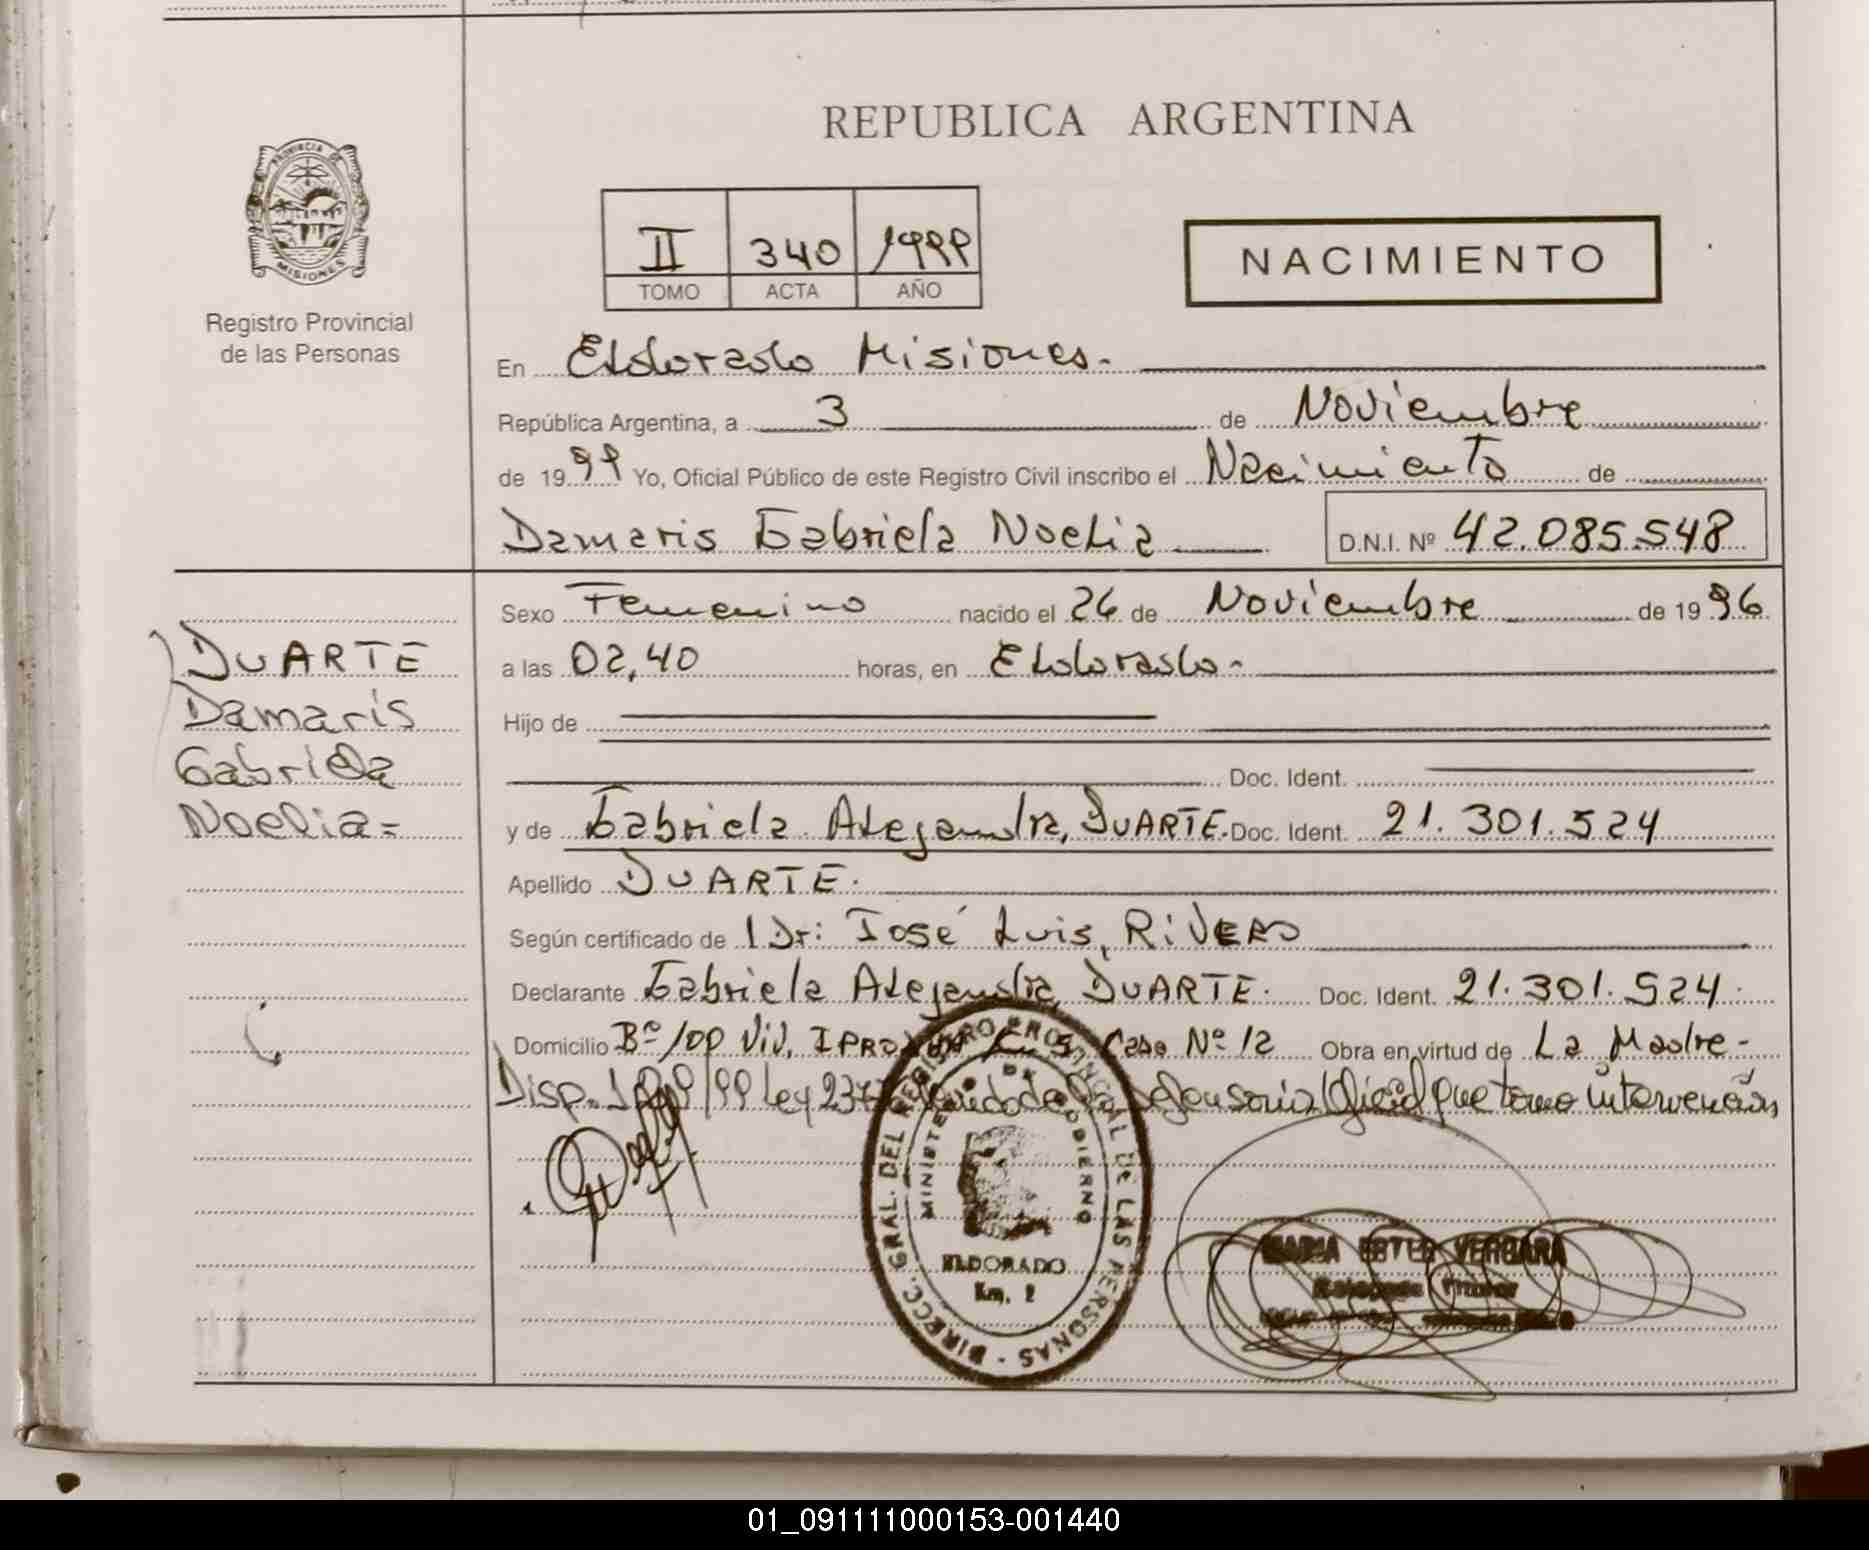 PROVINCIA DE
MISIONES
Registro Provincial
de las Personas
REPUBLICA ARGENTINA
II 340 1999
TOMO ACTA AÑO
NACIMIENTO
En Eldorado Misiones.
República Argentina, a 3 de Noviembre
de 1999 Yo, Oficial Público de este Registro Civil inscribo el Nacimiento de
Damaris Gabriela Noelia D.N.I. Nº 42.085.548
Sexo Femenino nacido el 26 de Noviembre de 1996
a las 02,40 horas, en Eldorado.
Hijo de
Doc. Ident.
y de Gabriela Alejandra, DUARTE. Doc. Ident. 21.301.524
Apellido DUARTE.
Según certificado de Dr: José Luis, RIVERO
Declarante Gabriela Alejandra DUARTE. Doc. Ident. 21.301.524.
Domicilio Bº 100 Viv. Casa Nº 12 Obra en virtud de La Madre-
Disp. /99 Ley Defensoria Oficial que tomo intervención
DUARTE
Damaris
Gabriela
Noelia=
DIRECC. GRAL. DEL REGISTRO PROVINCIAL DE LAS PERSONAS
MINISTERIO DE GOBIERNO
ELDORADO
Km. 2
MARIA ESTER VERGARA
Titular
01_091111000153-001440